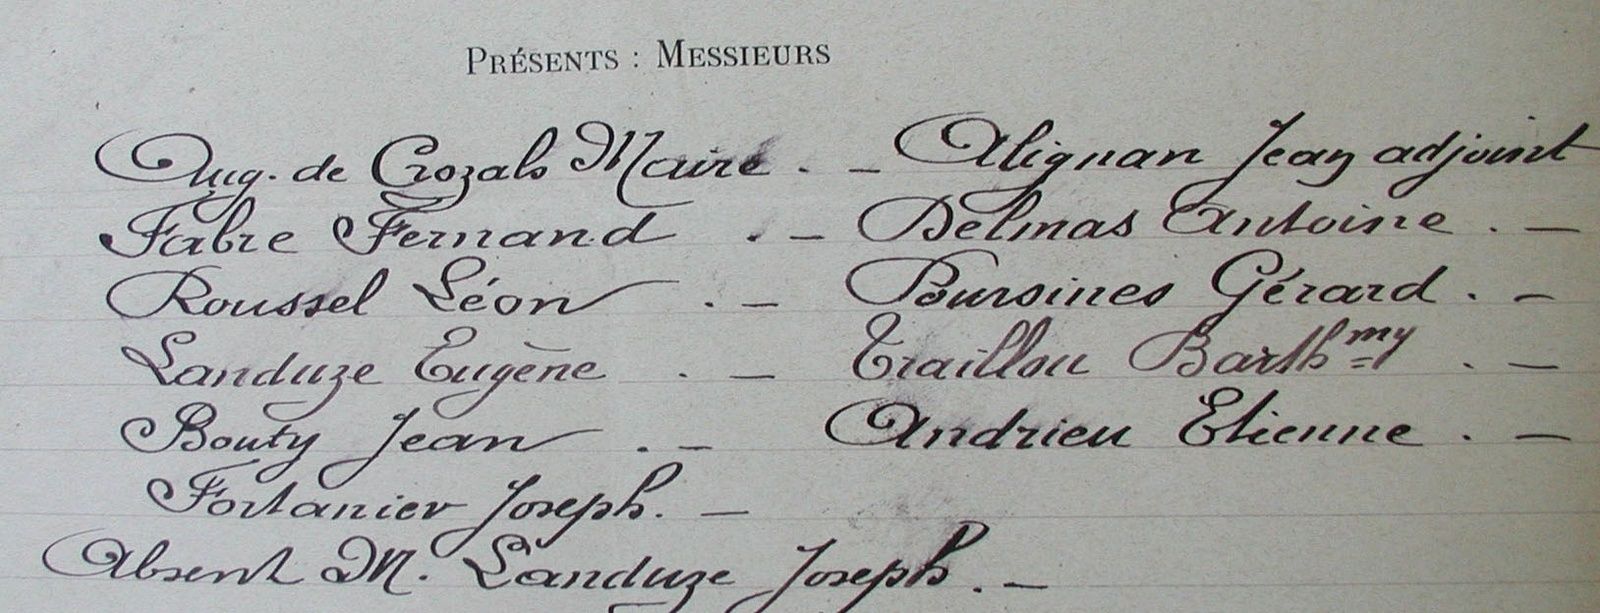 PRÉSENTS : MESSIEURS
Aug. de Crozals Maire . — Alignan Jean adjoint
Fabre Fernand . — Delmas Antoine . —
Roussel Léon . — Poursines Gérard . —
Landuze Eugène . — Traillou Barthmy . —
Bouty Jean . — Andrieu Etienne . —
Fortanier Joseph. —
Absent M. Landuze Joseph . —